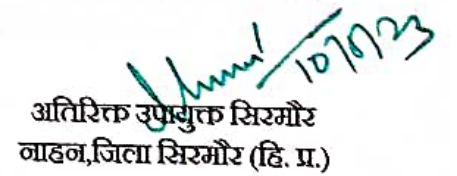 अतिरिक्त उपायुक्त सिरमौर
नाहन,जिला सिरमौर (हि. प्र.)